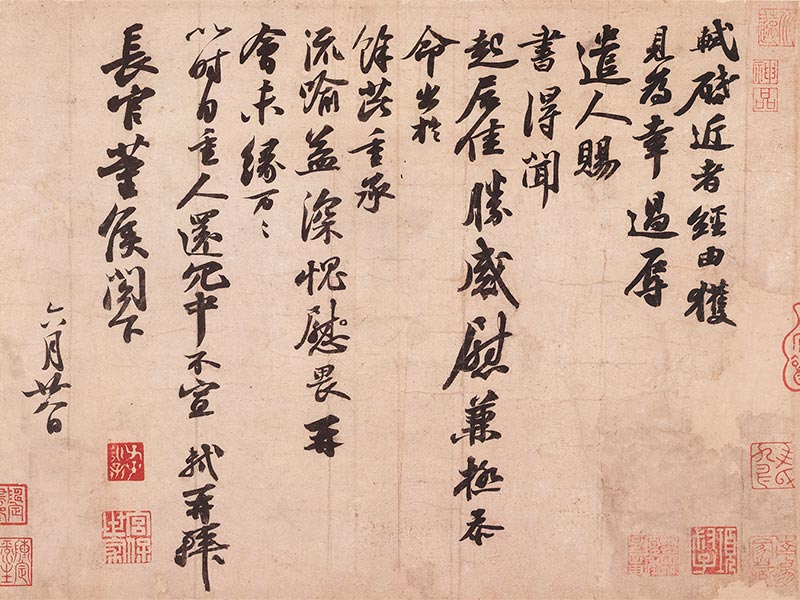 軾啟近者經由獲
見為幸過辱
遣人賜
書得聞
起居佳勝感慰兼極忝
命出於
餘芘重承
流喻益深愧慰畏再
會未緣万万
以时自重人還冗中不宣 軾再拜
長官董侯閣下
六月廿八日
神品